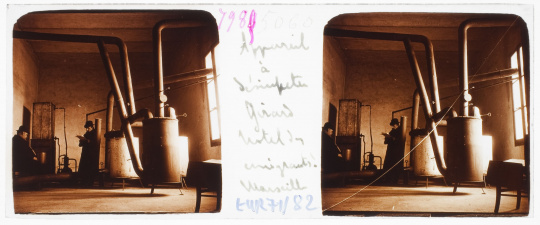 798
Appareil
à
désinfecter
Girard
Hotel des
émigrants
Marseille
EUR71/82